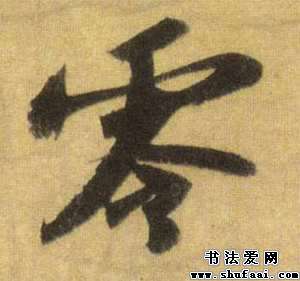 零
书法爱网
www.shufaai.com